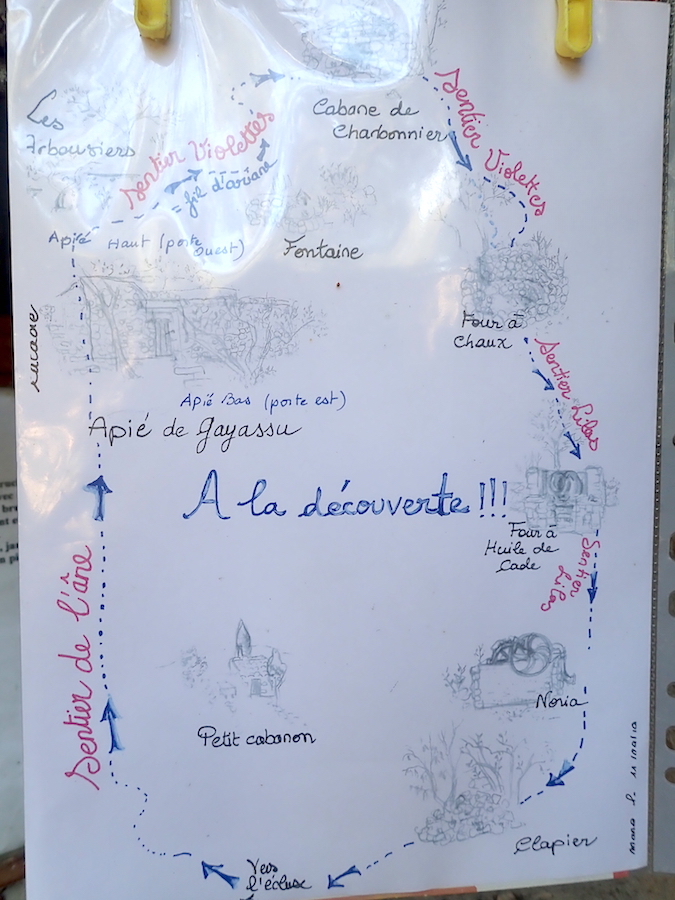 Cabane de
Charbonnier
Les
Arbousiers
Sentier Violettes
Sentier Violettes
= fil d'ariane
Apié Haut (porte
Ouest)
Fontaine
Four à
Chaux
Sentier Lilas
Apié Bas (porte est)
Apié de Gayassu
A la découverte !!!
Four à
Huile de
Cade
Sentier
Lilas
Sentier de l'âne
Petit cabanon
Noria
Clapier
Vers
l'écluse